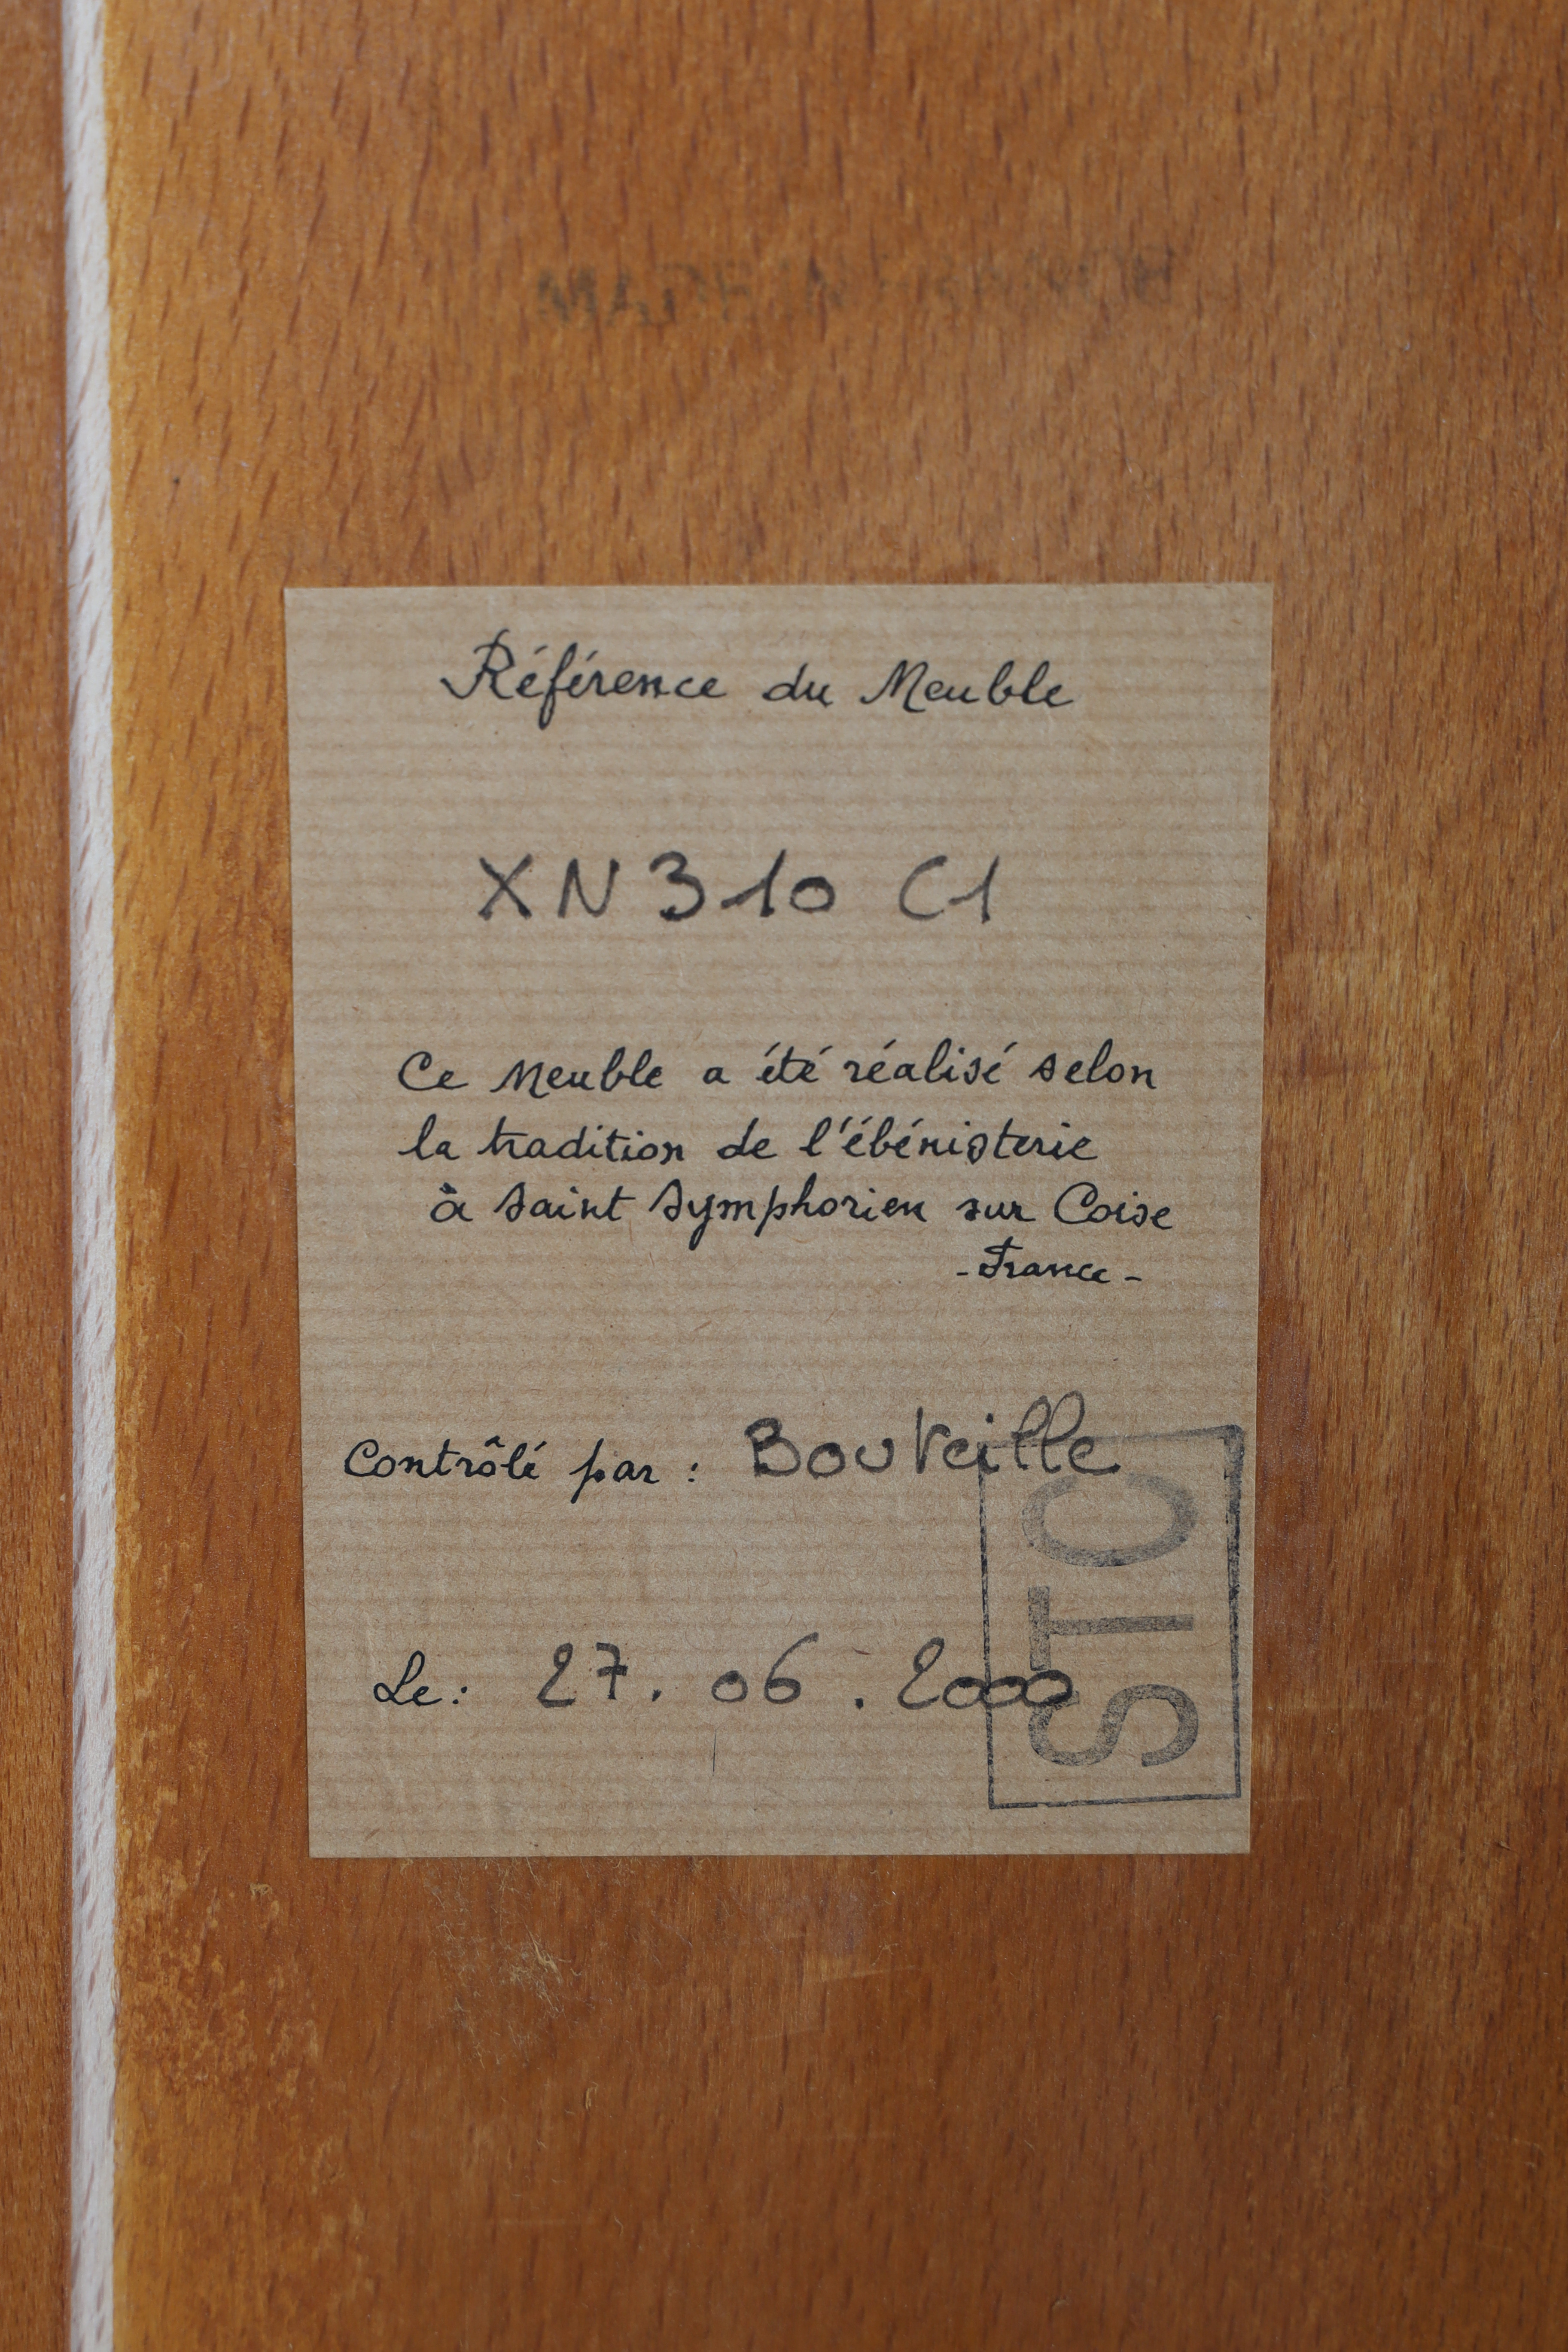 MADE IN FRANCE
Référence du Meuble
XN310 C1
Ce Meuble a été réalisé selon
la tradition de l'ébénisterie
à Saint Symphorien sur Coise
- France -
Contrôlé par : Bouteille
Le : 27. 06 . 2000
STO